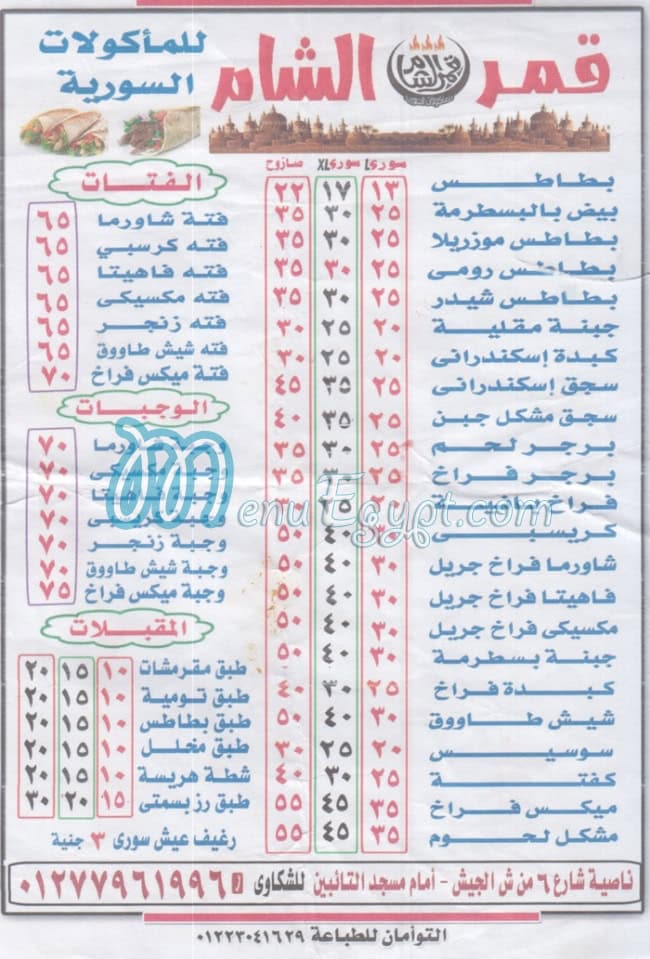 قمر الشام
للمأكولات
السورية
سورى L سورى XL صاروخ
بطاطس ١٣ ١٧ ٢٢
بيض بالبسطرمة ٢٥ ٣٠ ٣٥
بطاطس موزريلا ٢٥ ٣٠ ٣٥
بطاطس رومى ٢٥ ٣٠ ٣٥
بطاطس شيدر ٢٥ ٣٠ ٣٥
جبنة مقلية ٢٠ ٢٥ ٣٠
كبدة إسكندرانى ٢٠ ٢٥ ٣٠
سجق إسكندرانى ٢٥ ٣٥ ٤٥
سجق مشكل جبن ٢٥ ٣٥ ٤٠
برجر لحم ٢٥ ٣٠ ٣٥
برجر فراخ ٢٥ ٣٠ ٣٥
فراخ
كريسبى ٤٠ ٥٠
شاورما فراخ جريل ٣٠ ٤٠ ٥٠
فاهيتا فراخ جريل ٣٠ ٤٠ ٥٠
مكسيكى فراخ جريل ٣٠ ٤٠ ٥٠
جبنة بسطرمة ٣٠ ٤٠ ٥٠
كبدة فراخ ٢٥ ٣٠ ٤٠
شيش طاووق ٣٠ ٤٠ ٥٠
سوسيس ٢٠ ٢٥ ٣٠
كفتة ٢٥ ٣٠ ٤٠
ميكس فراخ ٣٥ ٤٥ ٥٥
مشكل لحوم ٣٥ ٤٥ ٥٥
الفتات
فتة شاورما ٦٥
فته كرسبي ٦٥
فته فاهيتا ٦٥
فته مكسيكى ٦٥
فته زنجر ٦٥
فته شيش طاووق ٦٥
فتة ميكس فراخ ٧٠
الوجبات
٧٠
٧٠
٧٠
٧٠
وجبة زنجر ٧٠
وجبة شيش طاووق ٧٠
وجبة ميكس فراخ ٧٥
المقبلات
طبق مقرمشات ١٠ ١٥ ٢٠
طبق تومية ١٠ ١٥ ٢٠
طبق بطاطس ١٠ ١٥ ٢٠
طبق مخلل ١٠ ١٥ ٢٠
شطة هريسة ١٠ ١٥ ٢٠
طبق رز بسمتى ١٥ ٢٠ ٣٠
رغيف عيش سورى ٣ جنية
MenuEgypt.com
ناصية شارع ٦ من ش الجيش - أمام مسجد التائبين للشكاوى ٠١٢٧٧٩٦١٩٩٦
التوأمان للطباعة ٠١٢٢٣٠٤١٦٢٩